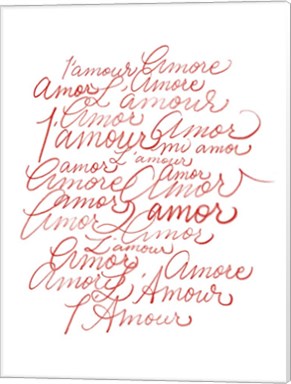 l'amour Amore
Amor L'Amore
L'amour
l'amour Amor
mi amor
L'amour
amor Amor
Amore Amor
Amor amor
Amor Amor
L'amour
Amor Amore
Amor L'Amour
l'Amour